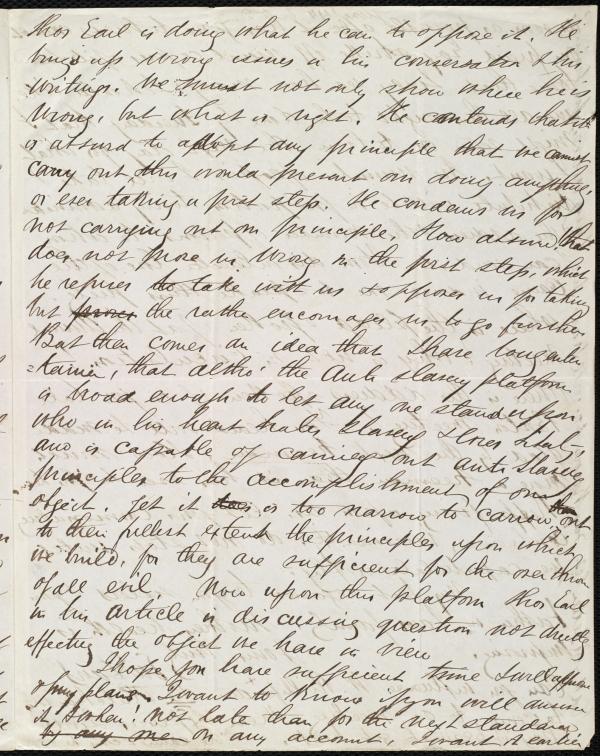 Thos Earl is doing what he can to oppose it. He
brings up wrong issues in his conversation & his
writings. We must not only show where he is
wrong, but what is right. He contends that it
is absurd to adopt any principle that we cannot
carry out, this would prevent our doing anything,
or ever taking a first step. He condems us for
not carrying out our principle, How absurd, that
does not prove us wrong in the first step, which
he refuses to take with us & opposes us for taking
but proves the rather encourages us to go further
But then comes an idea that I have long enter
=tained, that altho' the Anti Slavery platform
is broad enough to let any one stand upon
who in his heart hates Slavery & loves Liberty,
and is capable of carrying out anti Slavery
principles to the accomplishment of our
object. Yet it is too narrow to carry out
to their fullest extent the principles upon which
we build, for they are sufficient for the overthrow
of all evil. Now upon this platform Thos Earl
in his article is discussing question not directly
effecting the object we have in view
I hope you have sufficient time & will approve
of my plans. I want to know if you will answer
it, & when! not late than for the next standard
by any me on any account, I want